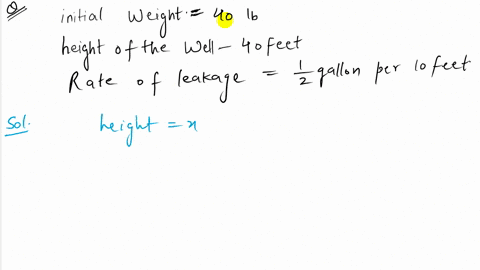 Q initial Weight = 40 lb
height of the Well - 40 feet
Rate of leakage = 1/2 gallon per 10 feet
Sol. height = x